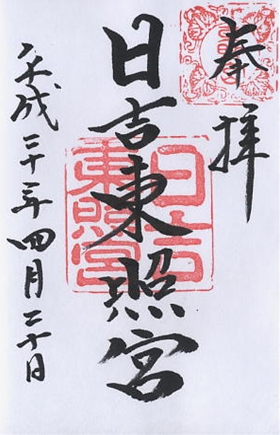 奉拝
日吉東照宮
平成二十三年四月二十日
日吉
東照宮